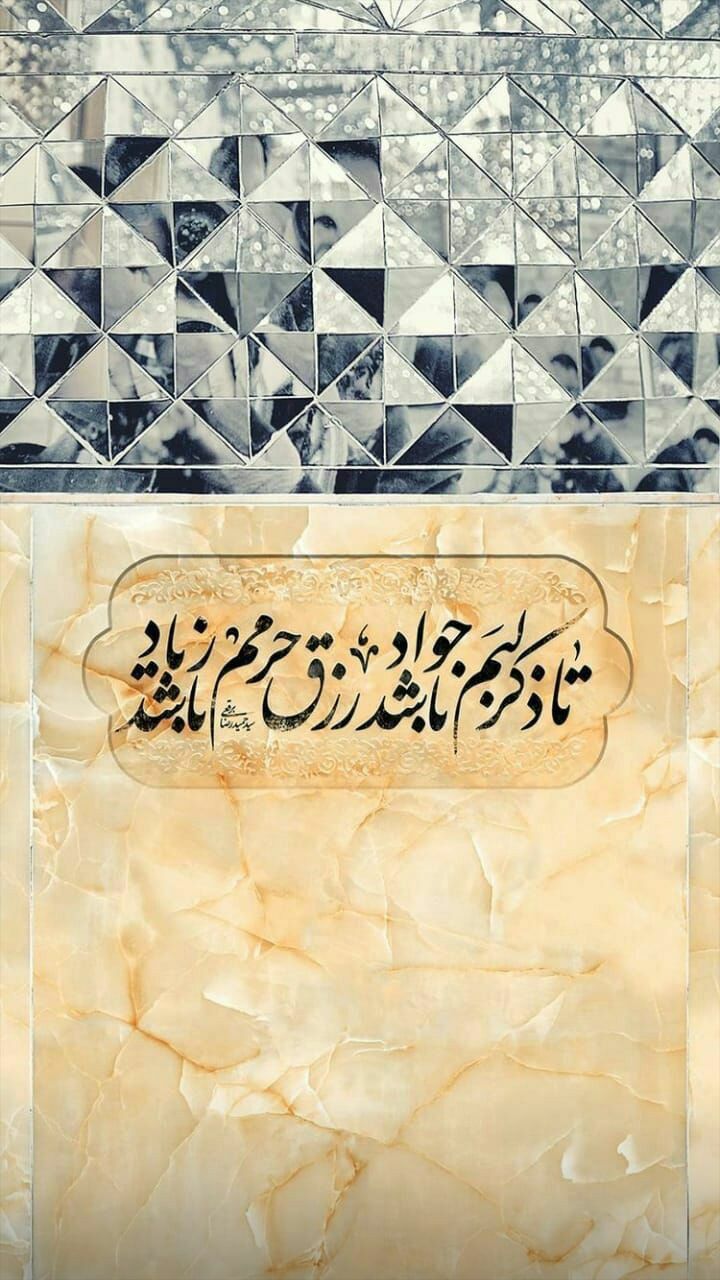 تا ذکر لبم جواد باشد رزق حرمم زیاد باشد
سید حمیدرضا برقعی